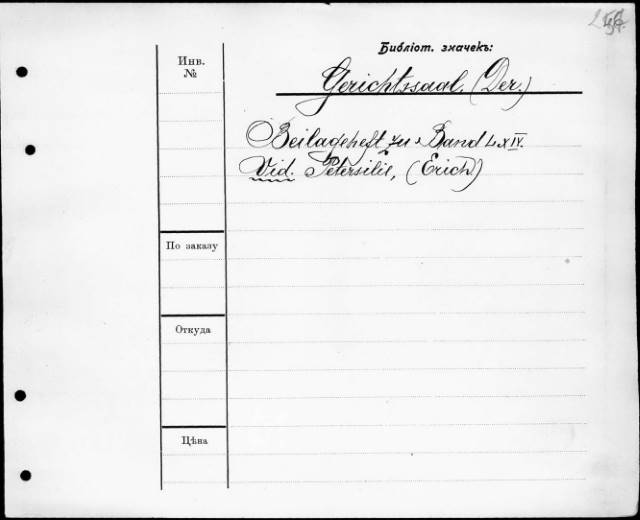 Библіот. значекъ:
Инв.
№
Gerichtssaal, (Der.)
Beilageheft zu Band LXIV.
Vid. Petersilie, (Erich)
По заказу
Откуда
Цѣна